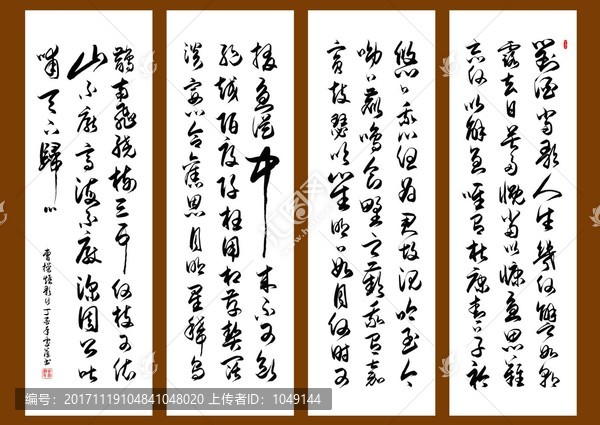 對酒當歌人生幾何譬如朝
露去日苦多慨當以慷憂思難
忘何以解憂唯有杜康青々子衿
悠々我心但為君故沉吟至今
呦々鹿鳴食野之蘋我有嘉
賓鼓瑟吹笙明々如月何時可
掇憂從中來不可斷
絕越陌度阡枉用相存契闊
談宴心念舊恩月明星稀烏
鵲南飛繞樹三匝何枝可依
山不厭高海不厭深周公吐
哺天下歸心
曹操短歌行丁酉年書
编号：20171119104841048020 上传者ID：1049144